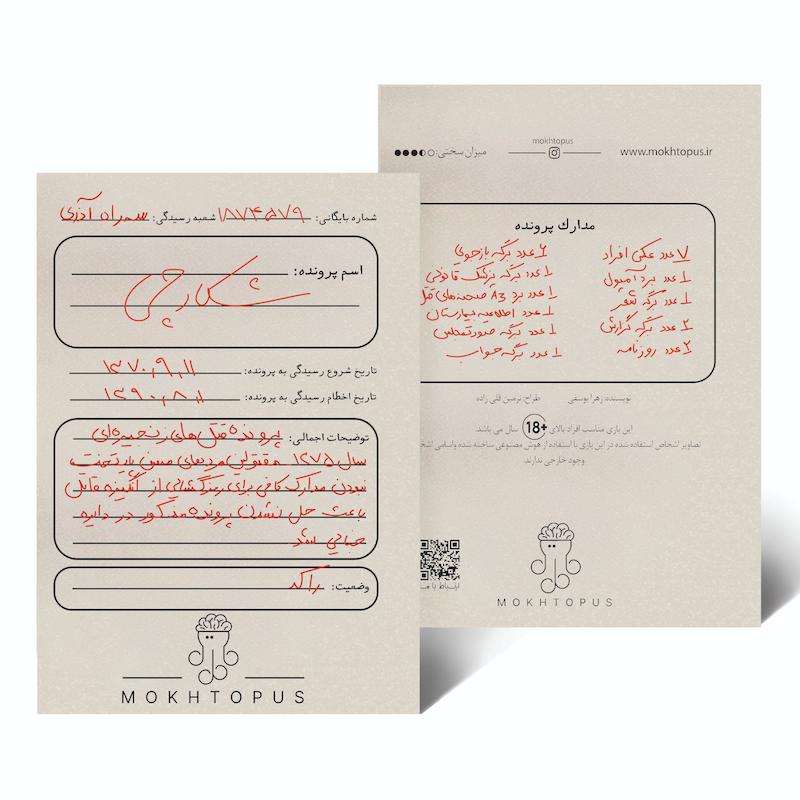 شماره بایگانی: ۱۸۷۴۵۷۹ شعبه رسیدگی:
اسم پرونده:
شکارچی
تاریخ شروع رسیدگی به پرونده: ۱۳۷۰,۹,۱۱
تاریخ اخطام رسیدگی به پرونده: ۱۳۹۰,۸,۱۱
توضیحات اجمالی: پرونده قتل های زنجیره ای
سال مقتولین مردهای مسن
نبودن مدارک کافی برای رمزگشایی از انگیزه قاتل
باعث حل نشدن پرونده مذکور در دایره
جنایی
وضعیت: راکد
MOKHTOPUS
میزان سختی:
mokhtopus
www.mokhtopus.ir
مدارک پرونده
۷ عدد عکس افراد
۱ عدد برد آمپول
۱ عدد برگه
۲ عدد برگه گزارش
۲ عدد روزنامه
۶ عدد برگه بازجویی
۱ عدد برگه پزشک قانونی
۱ عدد برد A3 صحنه های
۱ عدد اطلاعیه بیمارستان
۱ عدد برگه صورتمجلس
۱ عدد برگه جواب
نویسنده: زهرا یوسفی
طراح: نرمین قلی زاده
این بازی مناسب افراد بالای +18 سال می باشد.
تصاویر اشخاص استفاده شده در این بازی با استفاده از هوش مصنوعی ساخته شده واسامی
وجود خارجی ندارند.
ارتباط با
MOKHTOPUS